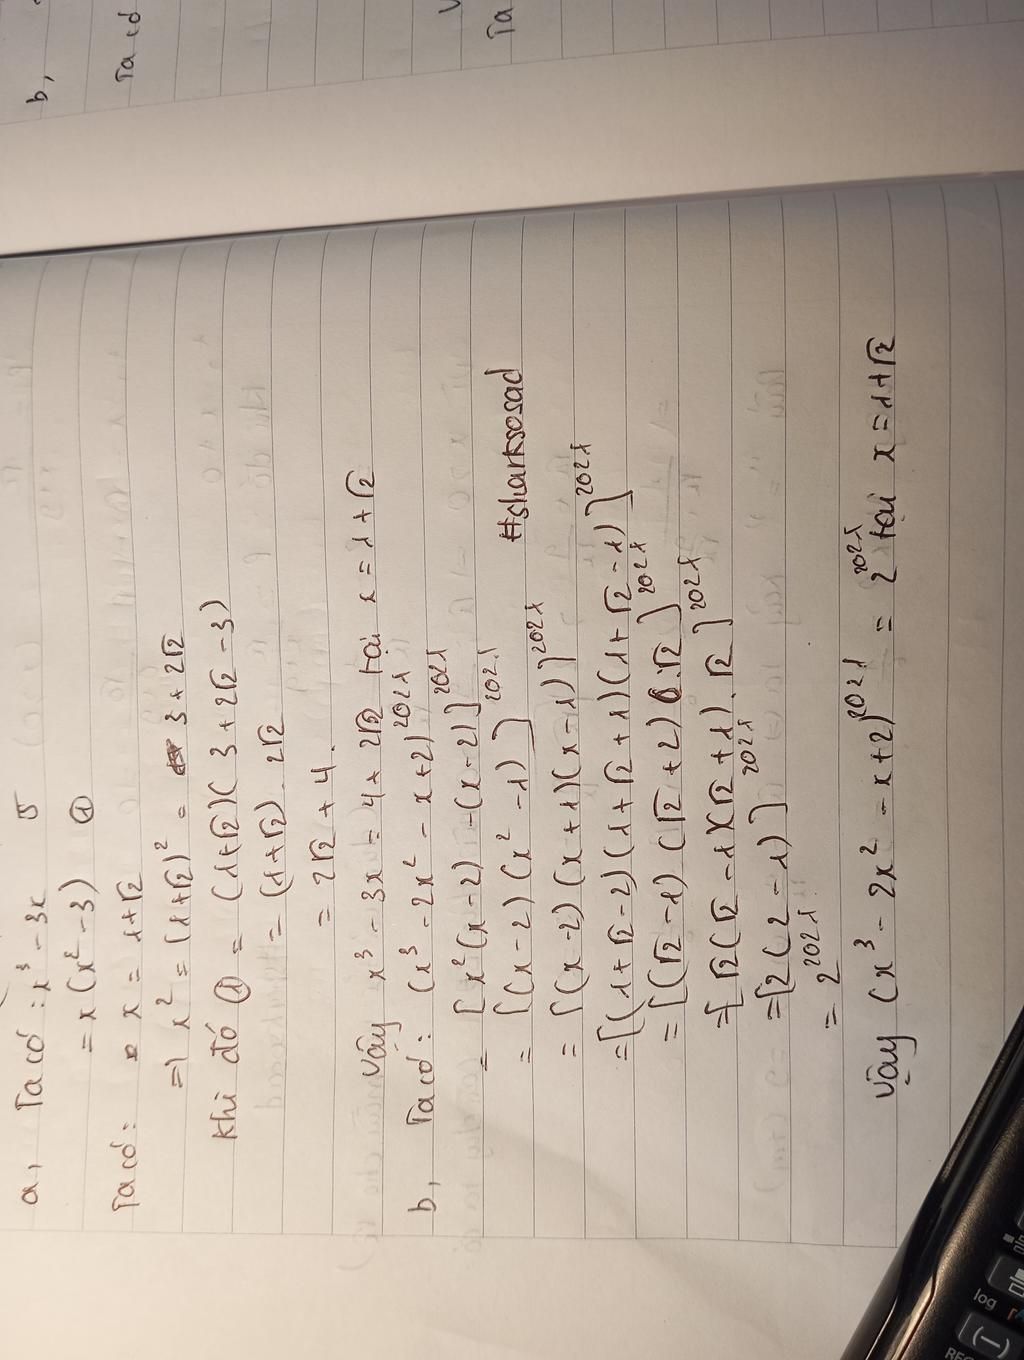 a, Ta có: x³ - 3x
= x(x² - 3) ①
Ta có: x = 1+√2
=> x² = (1+√2)² = 3 + 2√2
Khi đó ① = (1+√2)(3 + 2√2 - 3)
= (1+√2). 2√2
= 2√2 + 4.
Vậy x³ - 3x = 4 + 2√2 tại x = 1+√2
b, Ta có: (x³ - 2x² - x + 2)²⁰²¹
= [x²(x - 2) - (x - 2)]²⁰²¹
= [(x - 2)(x² - 1)]²⁰²¹
#sharksosad
= [(x - 2)(x + 1)(x - 1)]²⁰²¹
= [(1+√2 - 2)(1+√2 + 1)(1+√2 - 1)]²⁰²¹
= [(√2 - 1)(√2 + 2).√2]²⁰²¹
= [√2(√2 - 1)(√2 + 1).√2]²⁰²¹
= [2(2 - 1)]²⁰²¹
= 2²⁰²¹
Vậy (x³ - 2x² - x + 2)²⁰²¹ = 2²⁰²¹ tại x = 1+√2
b,
Ta có
Ta
log
(-)